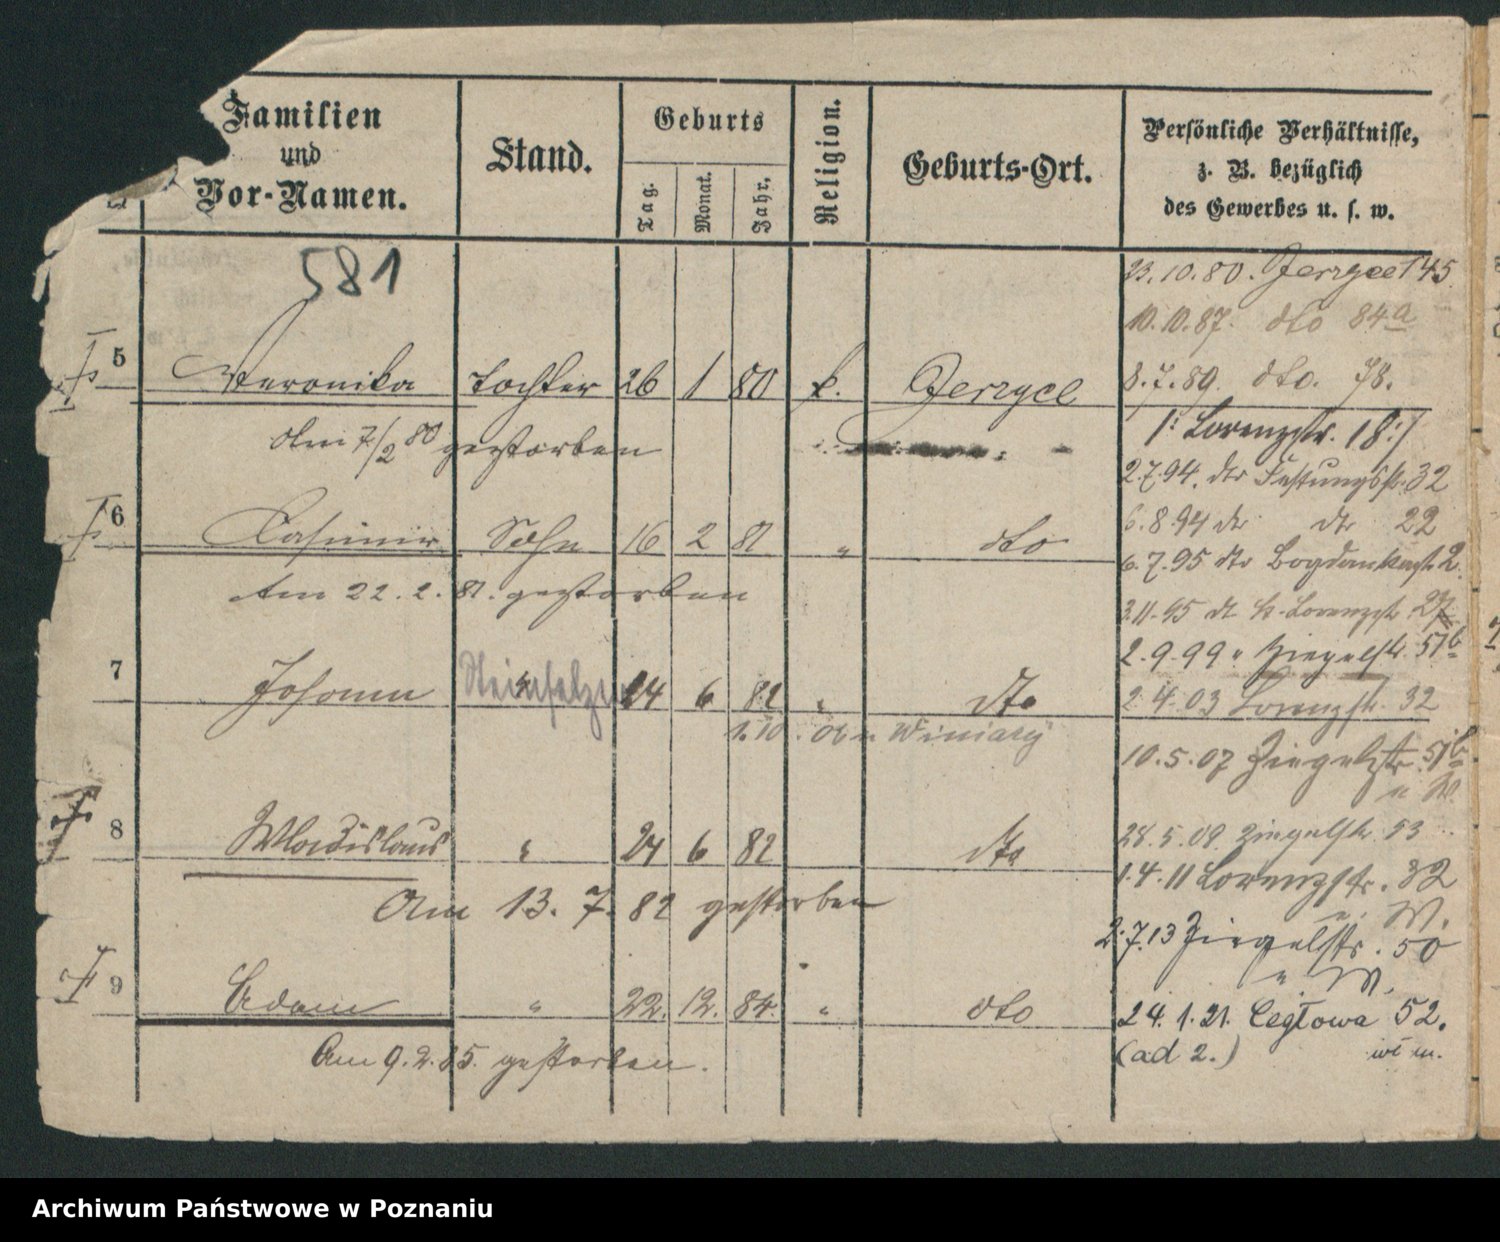 Familien und Vor-Namen.
Stand.
Geburts
Tag. Monat. Jahr.
Religion.
Geburts-Ort.
Persönliche Verhältnisse, z. B. bezüglich des Gewerbes u. s. w.
581
23.10.80. Jerzyce 145
10.10.87. dto 84a
5 Veronika Tochter 26 1 80 k. Jerzyce
8.7.89. dto. 78.
am 7/2 80 gestorben
1: Lorenzstr. 18:/
2.7.94. dto Festungsstr. 32
6 Casimir Sohn 16 2 81 " dto
6.8.94 dto dto 22
6.7.95 dto Bogdankastr. 2.
Am 22.2.81. gestorben
3.11.95 dt Lorenzstr 27
2.9.99 " Ziegelstr. 51b
7 Johann Steinsetzer 24 6 82 " dto
2.4.03 Lorenzstr. 32
1.10. Winiary
10.5.07 Ziegelstr. 51b
u W
8 Wladislaus " 24 6 82 dto
28.5.09 Ziegelstr. 53
1.4.11 Lorenzstr. 32
Am 13. 7. 82 gestorben
u. W.
2.7.13 Ziegelstr. 50
u. W.
9 Adam " 22. 12. 84. " dto
24.1.21. Cegłowa 52.
(ad 2.) wł m.
Am 9.2.85. gestorben.
Archiwum Państwowe w Poznaniu